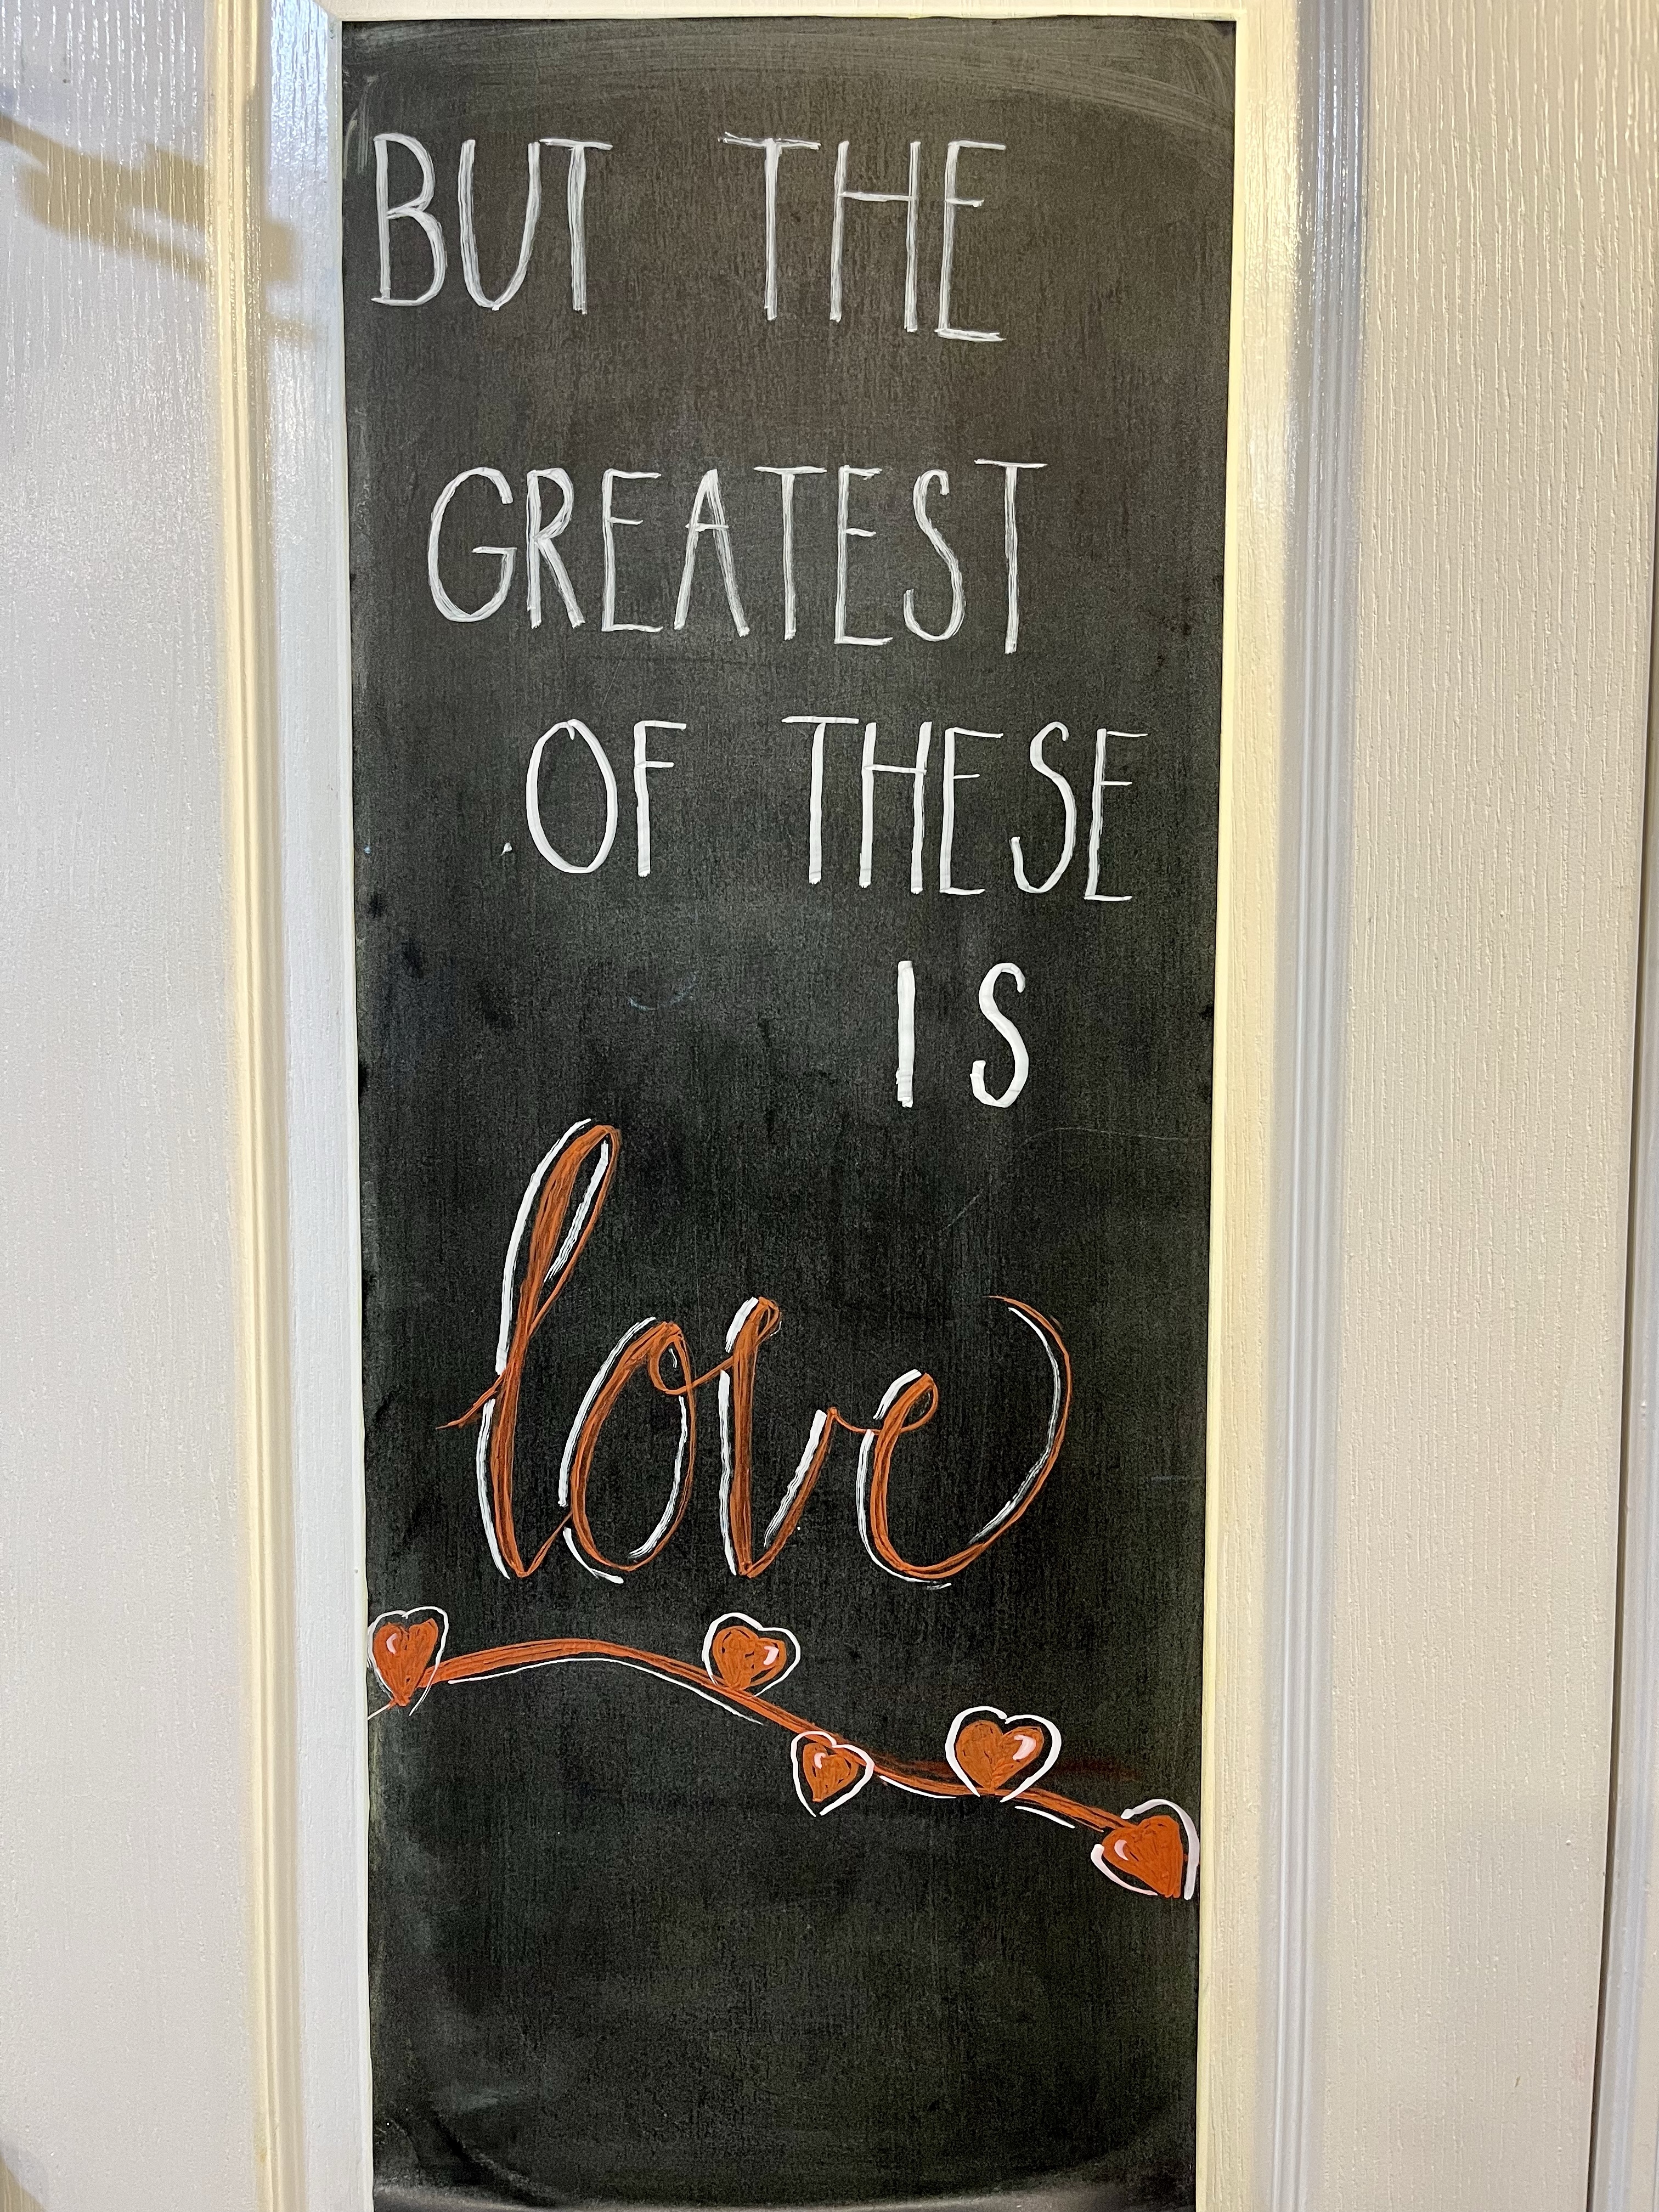 BUT THE
GREATEST
OF THESE
IS
love